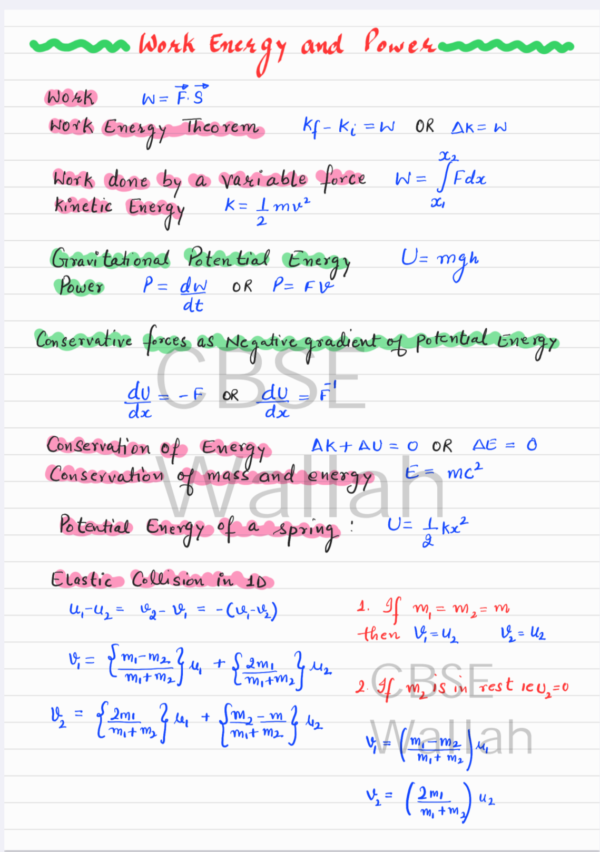 Work Energy and Power
Work W = F⃗.S⃗
Work Energy Theorem Kf - Ki = W OR ΔK = W
Work done by a variable force W = ∫ₓ₁ˣ₂ Fdx
Kinetic Energy K = 1/2 mv²
Gravitational Potential Energy U = mgh
Power P = dW/dt OR P = FV
Conservative forces as Negative gradient of Potential Energy
CBSE
dU/dx = -F OR dU/dx = F⁻¹
Conservation of Energy ΔK + ΔU = 0 OR ΔE = 0
Conservation of mass and energy E = mc²
Wallah
Potential Energy of a spring : U = 1/2 kx²
Elastic Collision in 1D
u₁-u₂ = v₂-v₁ = -(v₁-v₂)
v₁ = {m₁-m₂/m₁+m₂} u₁ + {2m₁/m₁+m₂} u₂
v₂ = {2m₁/m₁+m₂} u₁ + {m₂-m/m₁+m₂} u₂
1. If m₁ = m₂ = m
then v₁ = u₂ v₂ = u₂
CBSE
2. If m₂ is in rest ie u₂=0
Wallah
v₁ = (m₁-m₂/m₁+m₂) u₁
v₂ = (2m₁/m₁+m₂) u₂